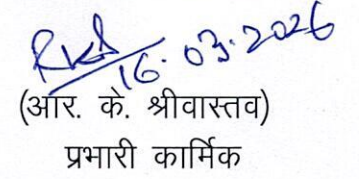 16.03.2026
(आर. के. श्रीवास्तव)
प्रभारी कार्मिक